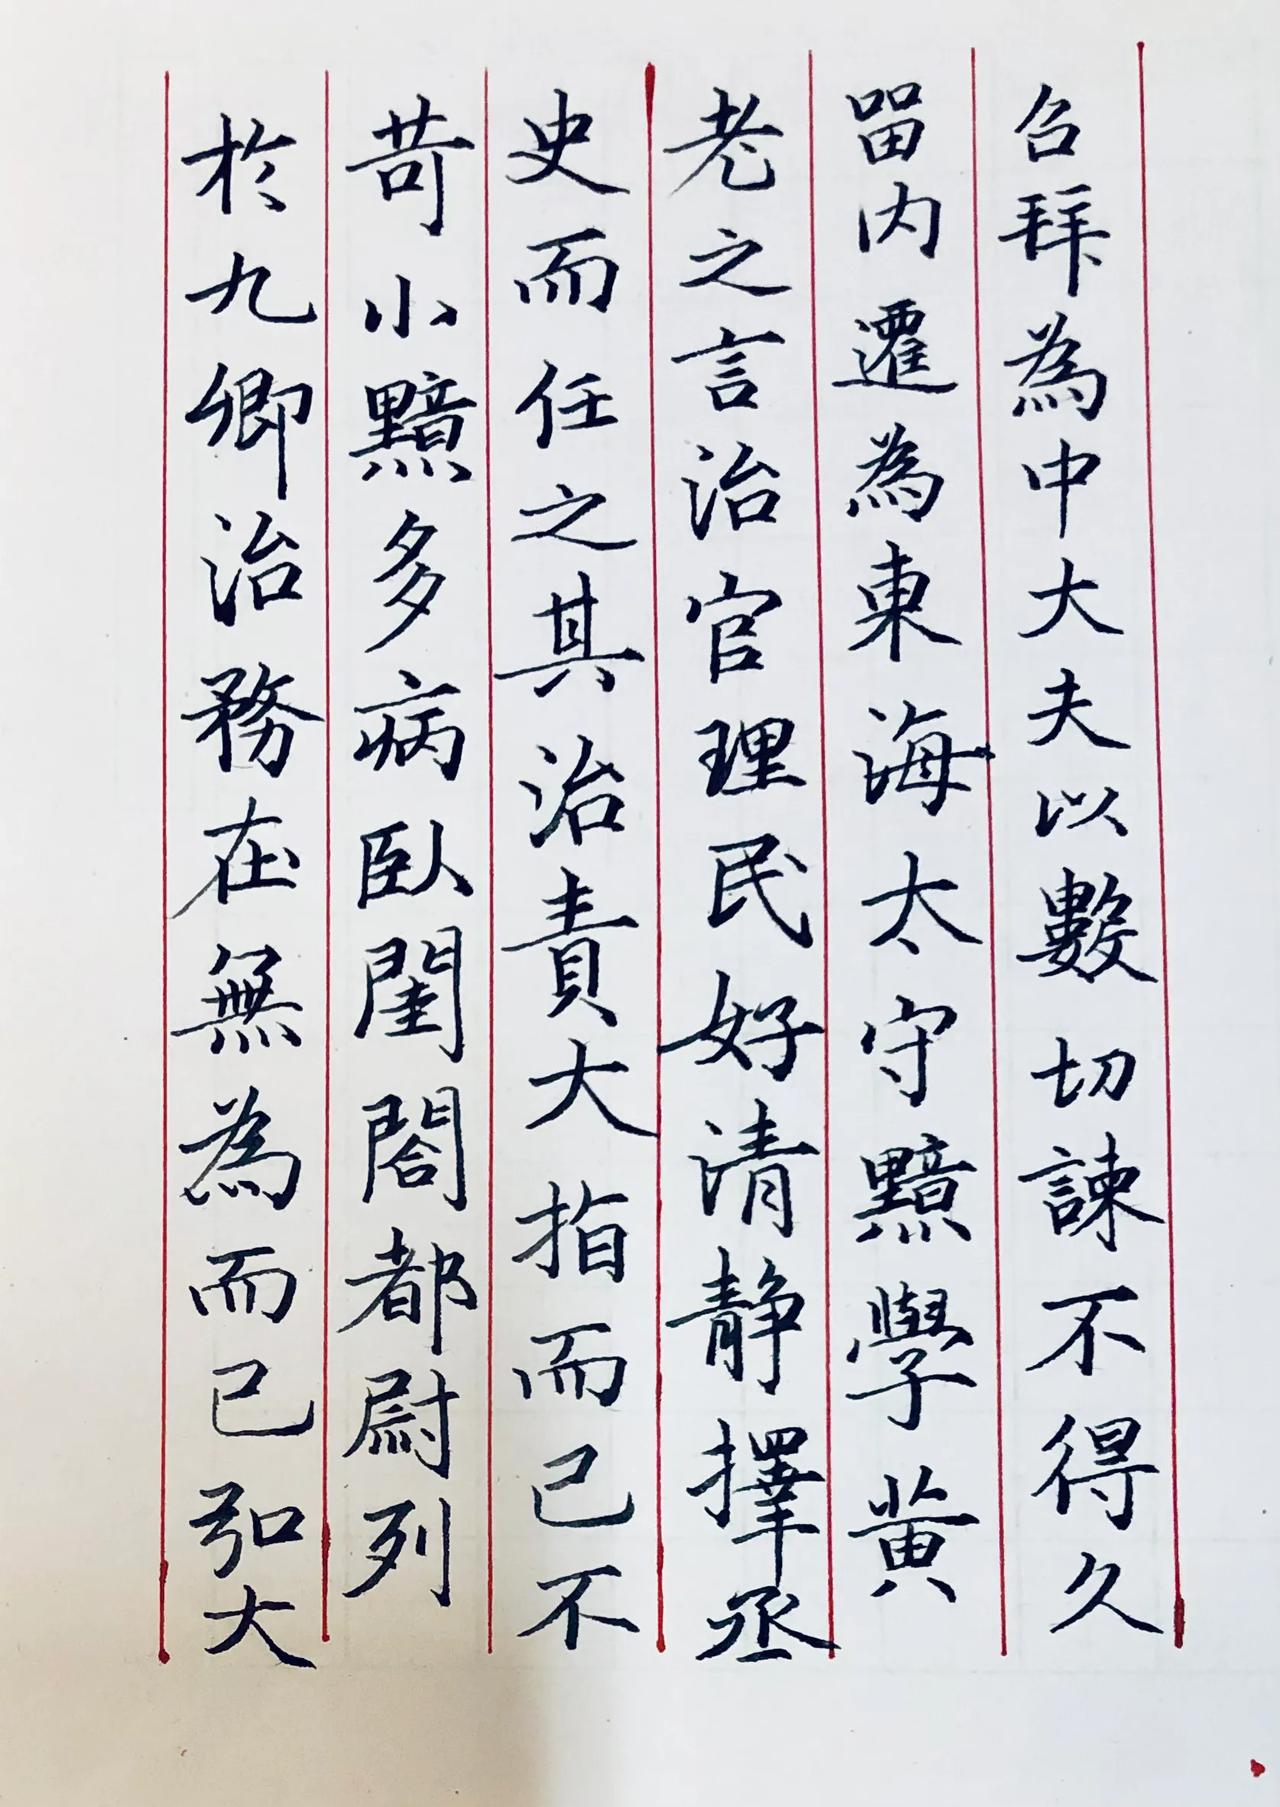 召拜為中大夫以數切諫不得久
留内遷為東海太守黯學黄
老之言治官理民好清静擇丞
史而任之其治責大指而已不
苛小黯多病臥閨閤都尉列
於九卿治務在無為而已弘大